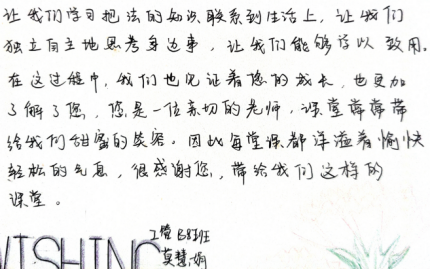 让我们学习把法的知识联系到生活上，让我们
独立自主地思考身边事，让我们能够学以致用。
在这过程中，我们也见证着您的成长，也更加
了解了您，您是一位亲切的老师，课堂常常带
给我们甜蜜的笑容。因此每堂课都洋溢着愉快
轻松的气息，很感谢您，带给我们这样的
课堂。
工管B81班
莫慧娴
WISHING